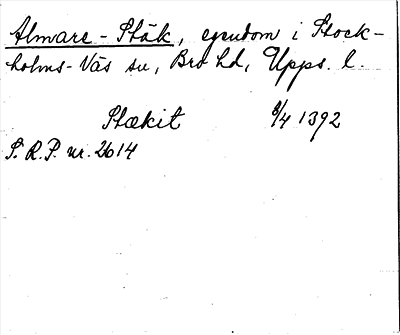 Almare - Stäk, egendom i Stock-
holms-Näs sn, Bro hd, Upps. l.
Stækit 8/4 1392
S.R.P. nr. 2614